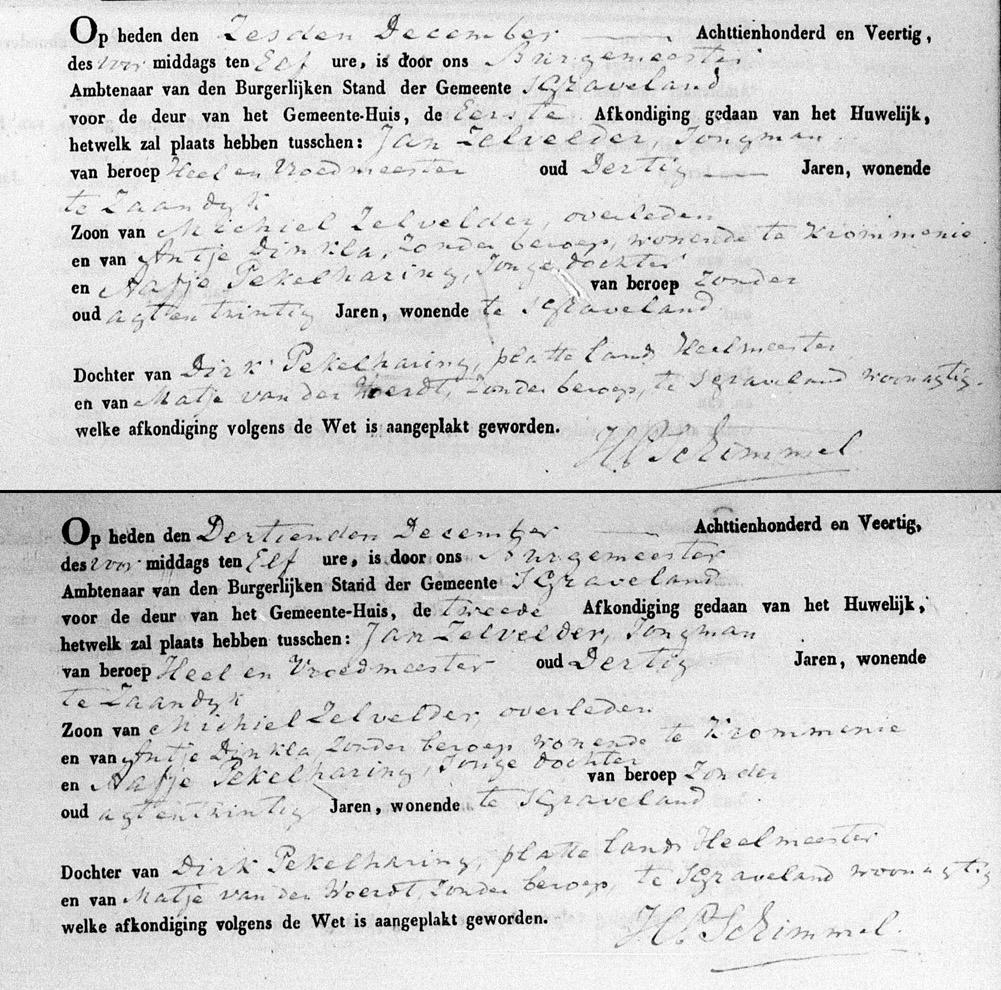 Op heden den Zesden December Achttienhonderd en Veertig,
des voor middags ten Elf ure, is door ons Burgemeester
Ambtenaar van den Burgerlijken Stand der Gemeente SGraveland
voor de deur van het Gemeente-Huis, de Eerste Afkondiging gedaan van het Huwelijk,
hetwelk zal plaats hebben tusschen: Jan Zelvelder, Jongman
van beroep Heel en Vroedmeester oud Dertig Jaren, wonende
te Zaandyk
Zoon van Michiel Zelvelder, overleden
en van Antje Dinkla, Zonder beroep, wonende te Krommenie
en Aafje Pekelharing, Jonge dochter van beroep Zonder
oud agt en twintig Jaren, wonende te SGraveland
Dochter van Dirk Pekelharing, platte lands Heelmeester
en van Matje van der Woerdt, Zonder beroep, te SGraveland woonagtig.
welke afkondiging volgens de Wet is aangeplakt geworden.
H.P. Schimmel
Op heden den Dertienden December Achttienhonderd en Veertig,
des voor middags ten Elf ure, is door ons Burgemeester
Ambtenaar van den Burgerlijken Stand der Gemeente SGraveland
voor de deur van het Gemeente-Huis, de tweede Afkondiging gedaan van het Huwelijk,
hetwelk zal plaats hebben tusschen: Jan Zelvelder, Jongman
van beroep Heel en Vroedmeester oud Dertig Jaren, wonende
te Zaandyk
Zoon van Michiel Zelvelder, overleden
en van Antje Dinkla, Zonder beroep wonende te Krommenie
en Aafje Pekelharing, Jonge dochter van beroep Zonder
oud agt en twintig Jaren, wonende te SGraveland
Dochter van Dirk Pekelharing, platte lands Heelmeester
en van Matje van der Woerdt, Zonder beroep, te SGraveland woonagtig
welke afkondiging volgens de Wet is aangeplakt geworden.
H.P. Schimmel